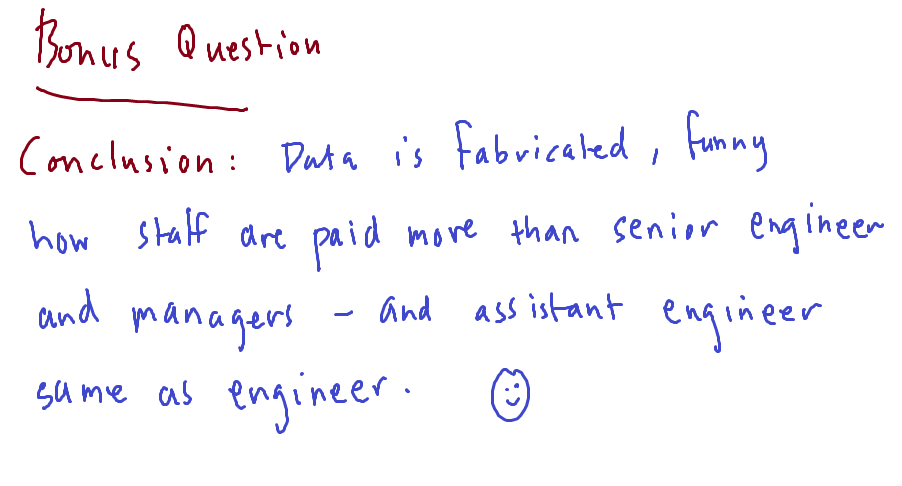 Bonus Question
Conclusion: Data is fabricated, funny
how staff are paid more than senior engineer
and managers - and assistant engineer
same as engineer.